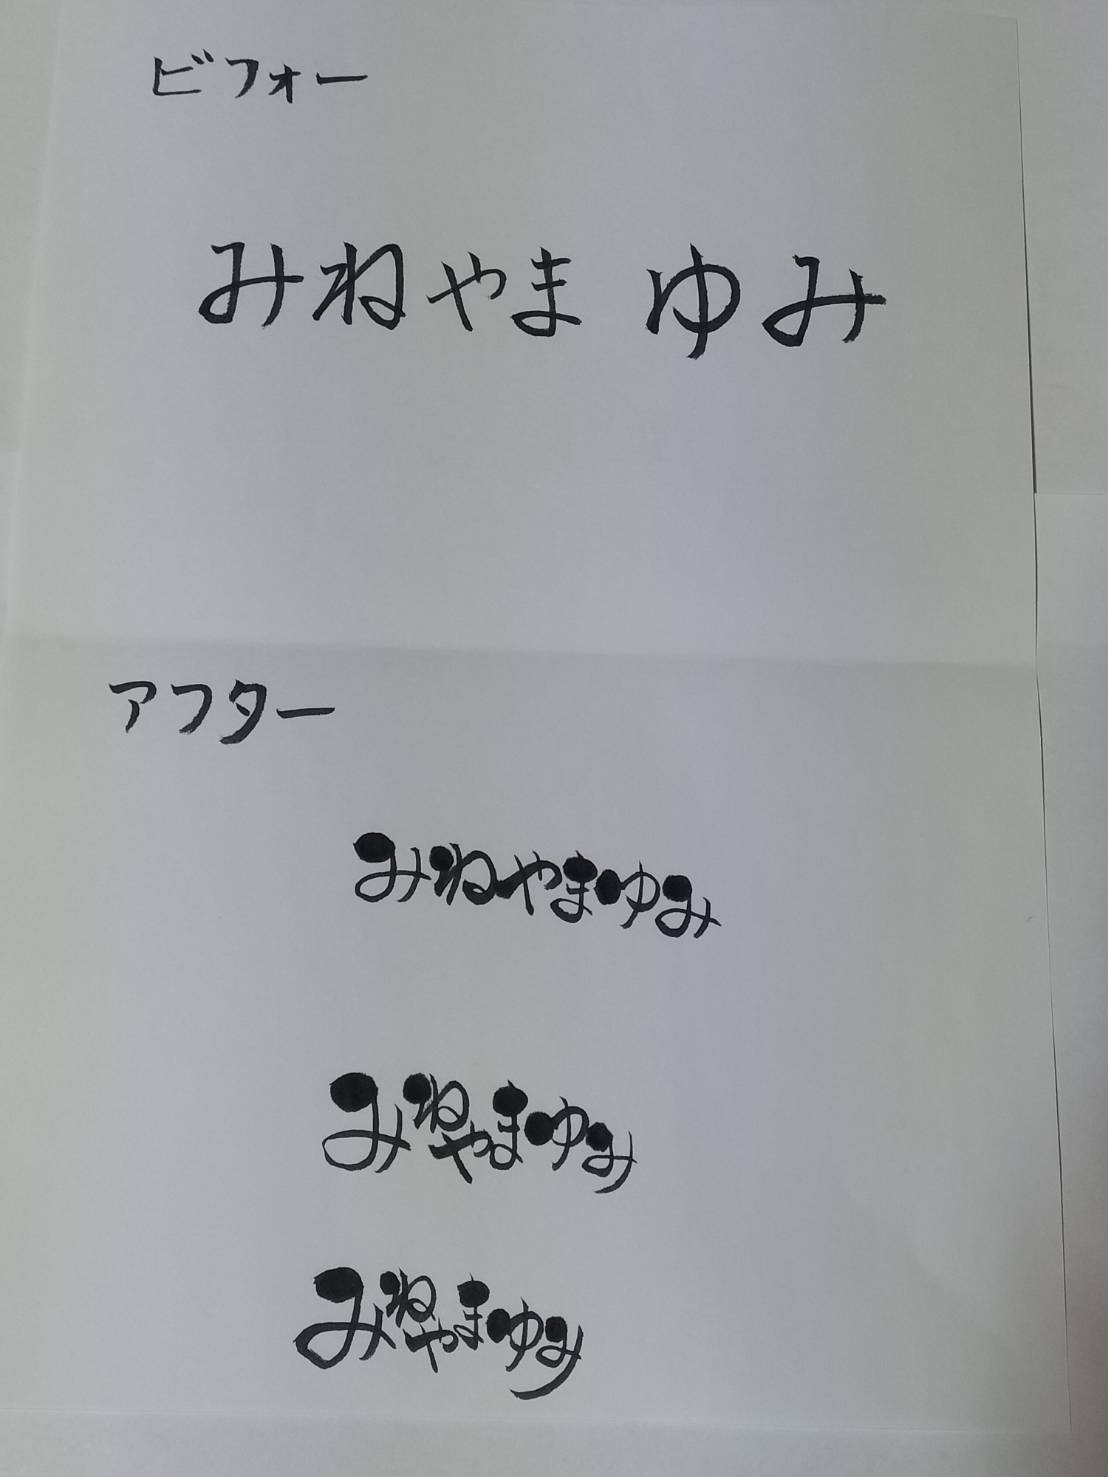 ビフォー
みねやま ゆみ
アフター
みねやまゆみ
みねやまゆみ
みねやまゆみ